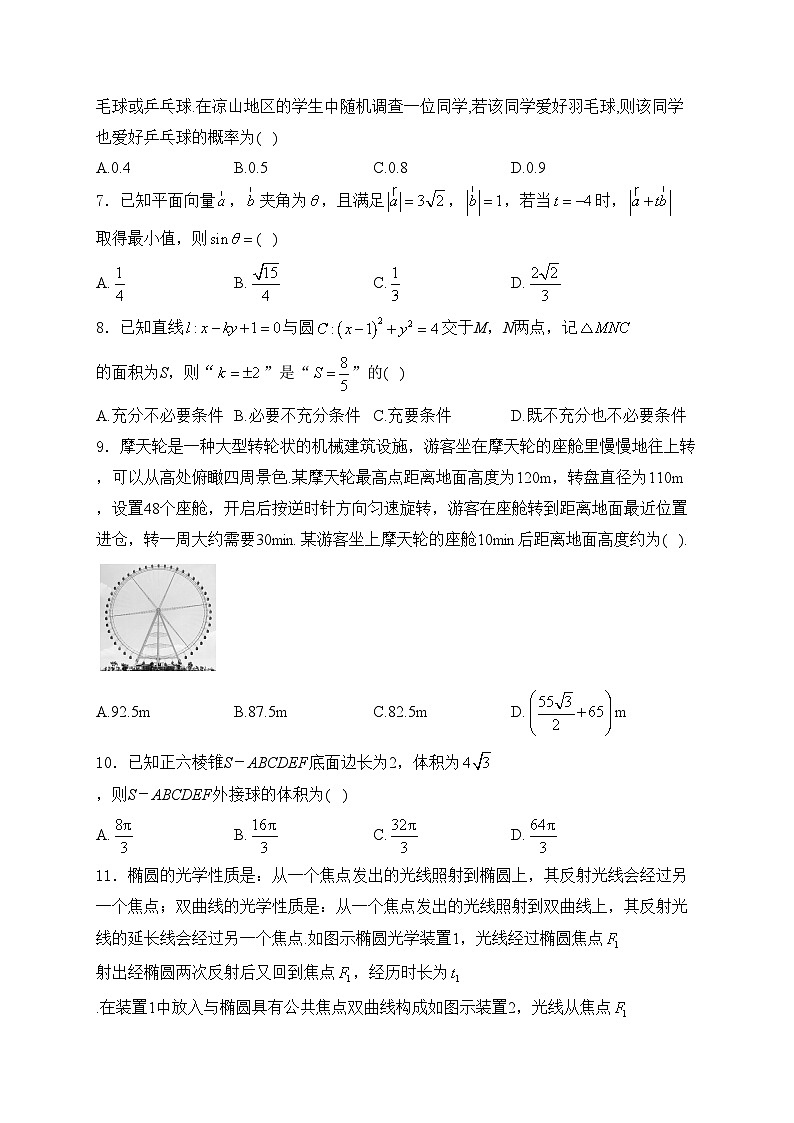 毛球或乒乓球.在凉山地区的学生中随机调查一位同学,若该同学爱好羽毛球,则该同学
也爱好乒乓球的概率为( )
A.0.4 B.0.5 C.0.8 D.0.9
7．已知平面向量a，b夹角为θ，且满足|a|=3√2，|b|=1，若当t=−4时，|a+tb|
取得最小值，则sinθ=( )
A.1/4 B.√15/4 C.1/3 D.2√2/3
8．已知直线l:x−ky+1=0与圆C:(x−1)²+y²=4交于M，N两点，记△MNC
的面积为S，则“k=±2”是“S=8/5”的( )
A.充分不必要条件 B.必要不充分条件 C.充要条件 D.既不充分也不必要条件
9．摩天轮是一种大型转轮状的机械建筑设施，游客坐在摩天轮的座舱里慢慢地往上转
，可以从高处俯瞰四周景色.某摩天轮最高点距离地面高度为120m，转盘直径为110m
，设置48个座舱，开启后按逆时针方向匀速旋转，游客在座舱转到距离地面最近位置
进仓，转一周大约需要30min.某游客坐上摩天轮的座舱10min后距离地面高度约为( ).
A.92.5m B.87.5m C.82.5m D.(55√3/2+65)m
10．已知正六棱锥S－ABCDEF底面边长为2，体积为4√3
，则S－ABCDEF外接球的体积为( )
A.8π/3 B.16π/3 C.32π/3 D.64π/3
11．椭圆的光学性质是：从一个焦点发出的光线照射到椭圆上，其反射光线会经过另
一个焦点；双曲线的光学性质是：从一个焦点发出的光线照射到双曲线上，其反射光
线的延长线会经过另一个焦点.如图示椭圆光学装置1，光线经过椭圆焦点F₁
射出经椭圆两次反射后又回到焦点F₁，经历时长为t₁
.在装置1中放入与椭圆具有公共焦点双曲线构成如图示装置2，光线从焦点F₁